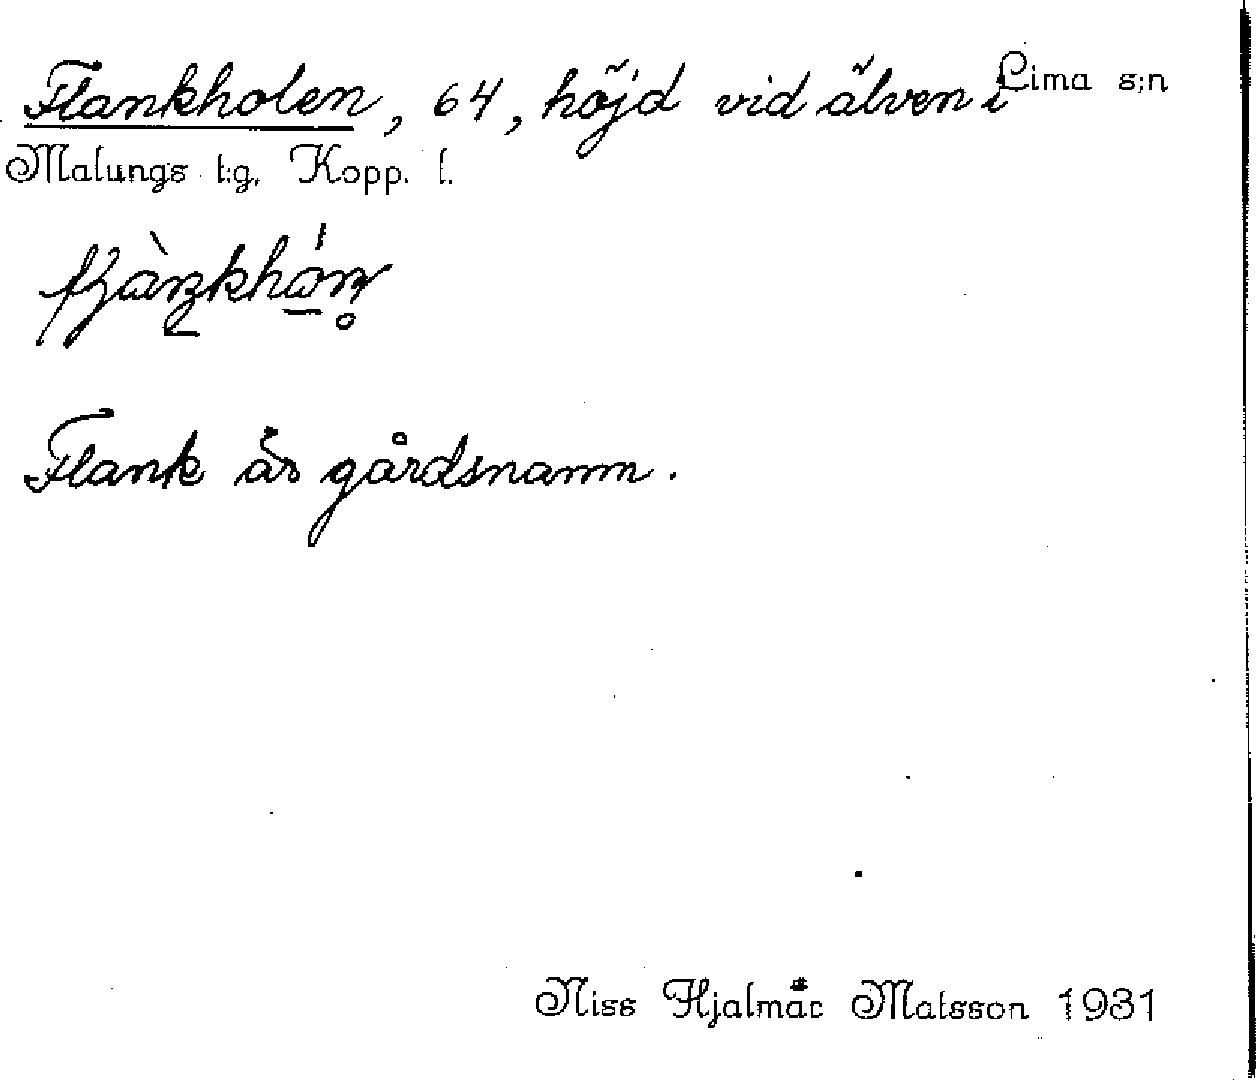 Flankholen, 64, höjd vid älven i Lima s:n
Malungs t:g, Kopp. l.
Flank är gårdsnamn.
Niss Hjalmar Matsson 1931